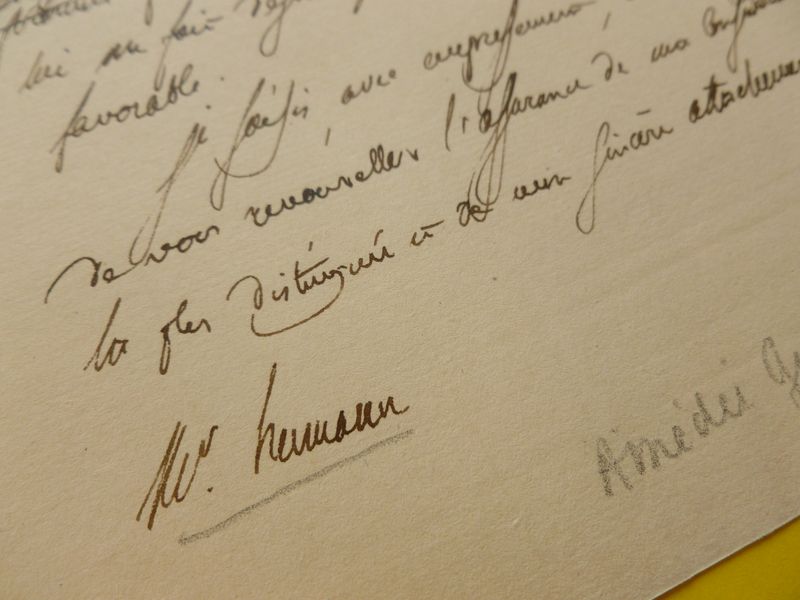 lui en fait
favorable.
Je saisis, avec empressement,
de vous renouveller l'assurance de ma
la plus distinguée et de mon sincère attachement
Mr. hermann
Amédée